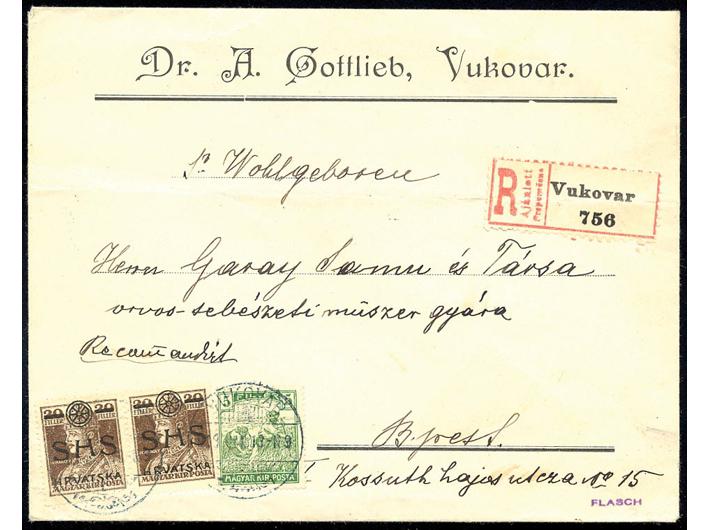 Dr. A. Gottlieb, Vukovar.
Sr Wohlgeboren
R
Ajánlott
Preporučeno
Vukovar
756
Herrn Garay Samu és Társa
orvos-sebészeti műszer gyára
Recommandirt
20 20
FILLER
SHS
HRVATSKA
MAGYAR KIR. POSTA
20 20
FILLER
SHS
HRVATSKA
MAGYAR KIR. POSTA
VUKOVAR
MAGYAR KIR. POSTA
Bpest.
Kossuth lajos utcza No 15
FLASCH